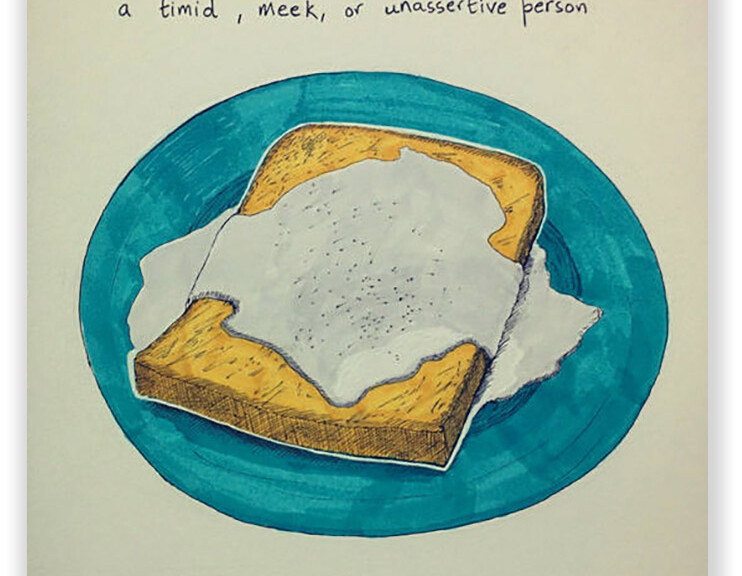 a timid, meek, or unassertive person